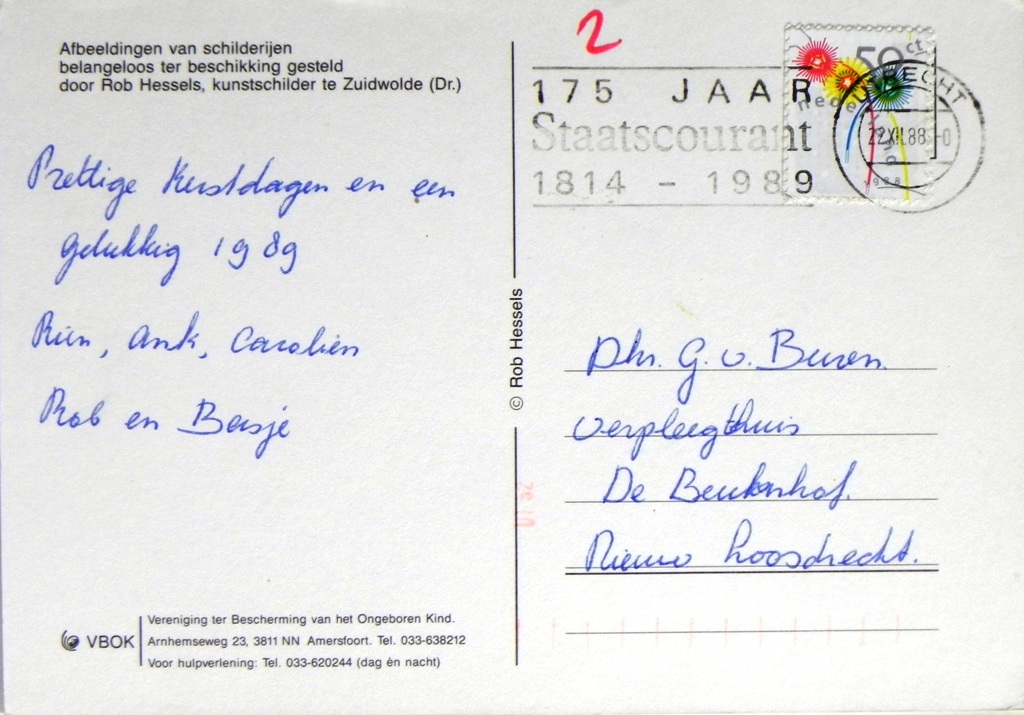 Afbeeldingen van schilderijen
belangeloos ter beschikking gesteld
door Rob Hessels, kunstschilder te Zuidwolde (Dr.)
Prettige Kerstdagen en een
gelukkig 1989
Rien, Ank, Carolien
Rob en Basje
VBOK
Vereniging ter Bescherming van het Ongeboren Kind.
Arnhemseweg 23, 3811 NN Amersfoort. Tel. 033-638212
Voor hulpverlening: Tel. 033-620244 (dag èn nacht)
© Rob Hessels
2
175 JAAR
Staatscourant
1814 - 1989
50 ct
nederland
1988
22XII.88
Dhr. G. v. Buren.
verpleegthuis
De Beukenhof.
Nieuw Loosdrecht.